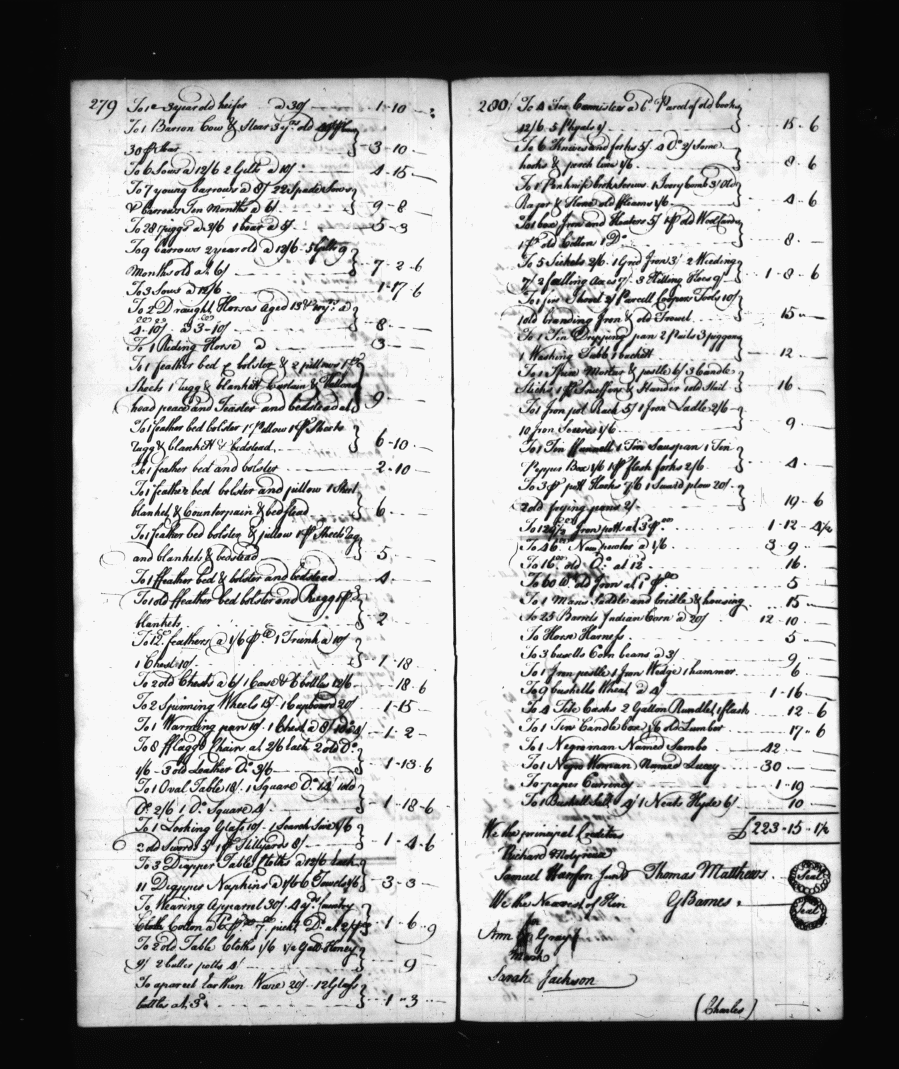 279 To 1 3 year old heifer a 30/ 1-10-
To 1 Barron Cow & Stear 3 yrs. old
30 ⅌ Stear 3-10
To 6 Sows a 12/6 2 Gilts a 10/ 4-15
To 7 young barrows a 8/ 22 Spade Sows
& barrows Ten Months a 6/ 9-8
To 28 piggs a 3/6 1 boar a 5/ 5-3
To 9 barrows 2 year old a 12/6 5 Gilts 9
Months old at 6/ 7-2-6
To 3 Sows a 12/6 1-17-6
To 2 Draught Horses aged 13 & yrs. a
4-10/ a 3-10/ 8
To 1 Riding Horse a 3
To 1 feather bed & bolster & 2 pillows 1 pr
Sheets 1 Rugg & blankett Curtain & Vallens
head peace and Teaster and bedstead at 9
To 1 feather bed bolster 1 Pillow 1 pr Sheets
rugg & blankett & bedstead 6-10
To 1 feather bed and bolster 2-10
To 1 feather bed bolster and pillow 1 Sheet
blanket & Counterpain & bedstead 6
To 1 feather bed bolster & pillow 1 pr Sheets rug
and blankets & bedstead 5
To 1 ffeather bed & bolster and bedstead 4
To 1 old ffeather bed bolster and Rugg 1 pr
blankets 2
To 12 feathers a 1/6 ⅌ 1 Trunk a 10/
1 Chest 10/ 1-18
To 2 old Chests a 6/ 1 Case & 6 bottles 12/6 18-6
To 2 Spinning Wheels 15/ 1 Cupboard 20/ 1-15
To 1 Warming pan 10/ 1 Chest a 8/ 1-2
To 8 fflagg'd Chairs at 2/6 Each 2 old Do.
1/6 - 3 old Leather Do. 3/6 1-13-6
To 1 Oval Table 18/ 1 Square Do. 14/ 1 old
Do. 2/6 1 Do. Square 4/ 1-18-6
To 1 Looking Glass 10/ 1 Search Sive 1/6
2 old Swords 5/ 1 pr Stillyards 8/ 1-4-6
To 3 Diapper Table Cloths a 12/6 Each
11 Diapper Napkins a 1/6 6 Towels 1/6 3-3
To Wearing Apparrel 30/ 4 yds.
Cloth Cotton 7 picks Do. at 2/4½ 1-6-9
To 2 old Table Cloths 1/6 1/2 Gall Honey
2 butter potts 4/ 9
To a parcel Earthen Ware 20/ 12 Glass
bottles at 3d. 1-3
280/ To 4 Tin Cannisters a 6d. Parcel of old books
12/6 5 Phyals 2/ 15-6
To 6 Knives and forks 5/ 4 Do. 2/ Some
hooks & perch line 1/6 8-6
To 1 Penknife Corkscrew 1 Ivory Comb 3/ Old
Razor & Hone old ffleams 1/6 4-6
To 1 box Iron and Heaters 5/ 1 pr old Woolfand
1 pr old Cotten 1 Do. 8
To 5 Sickels 2/6 1 Grid Iron 3/ 2 Weeding
7/ 2 falling Axes 7/ 3 Hilling Hoes 9/ 1-8-6
To 1 fire Shovel 2/ Parcell Cooper Tools 10/
1 old branding Iron & old Trowel 15
To 1 Tin Dripping pan 2 Pails 3 piggons
1 Washing Tubb 1 buckett 12
To 1 Spice Morter & pestle 6/ 3 Candle
Sticks 1 pr Snuffers & Stander 1 old Skil 16
To 1 Iron pot Rack 5/ 1 Iron Ladle 2/6
10 pron 1/6 9
To 1 Tin ffunnell 1 Tin Sauspan 1 Tin
Pepper Box 1/6 1 pr flesh forks 2/6 4
To 3 pr pott Hooks 7/6 1 Suard plow 20/
2 old frying pans 2/ 19-6
To 129½ Iron potts at 3d ⅌ 1-12-4½
To 46 New pewter a 1/6 3-9
To 16 old Do. at 12 16
To 60 lb old Iron at 1d ⅌ 5
To 1 Mans Saddle and bridle & housing 15
To 25 Barrels Indian Corn a 20/ 12 10
To Horse Harness 5
To 3 busells Corn beans a 3/ 9
To 1 Iron pestle 1 Iron Wedge 1 hammer 6
To 9 bushells Wheat a 4/ 1-16
To 4 Tite Casks 2 Gallon Rundlet, 1 flask 12-6
To 1 Tin Candle box 1/6 old Lumber 17-6
To 1 Negro man Named Sambo 42
To 1 Negro Woman Named Lucy 30
To paper Currency 1-19
To 1 Bushell Salt 4/ 1 Neats Hyde 6/ 10
£223-15-1½
We the principal Creditors
Richard Molyneux
Samuel Hanson Junr Thomas Matthews Seal
We the Nearest of Kin G Barnes Seal
her
Ann Gray
Mark
Sarah Jackson
(Charles)